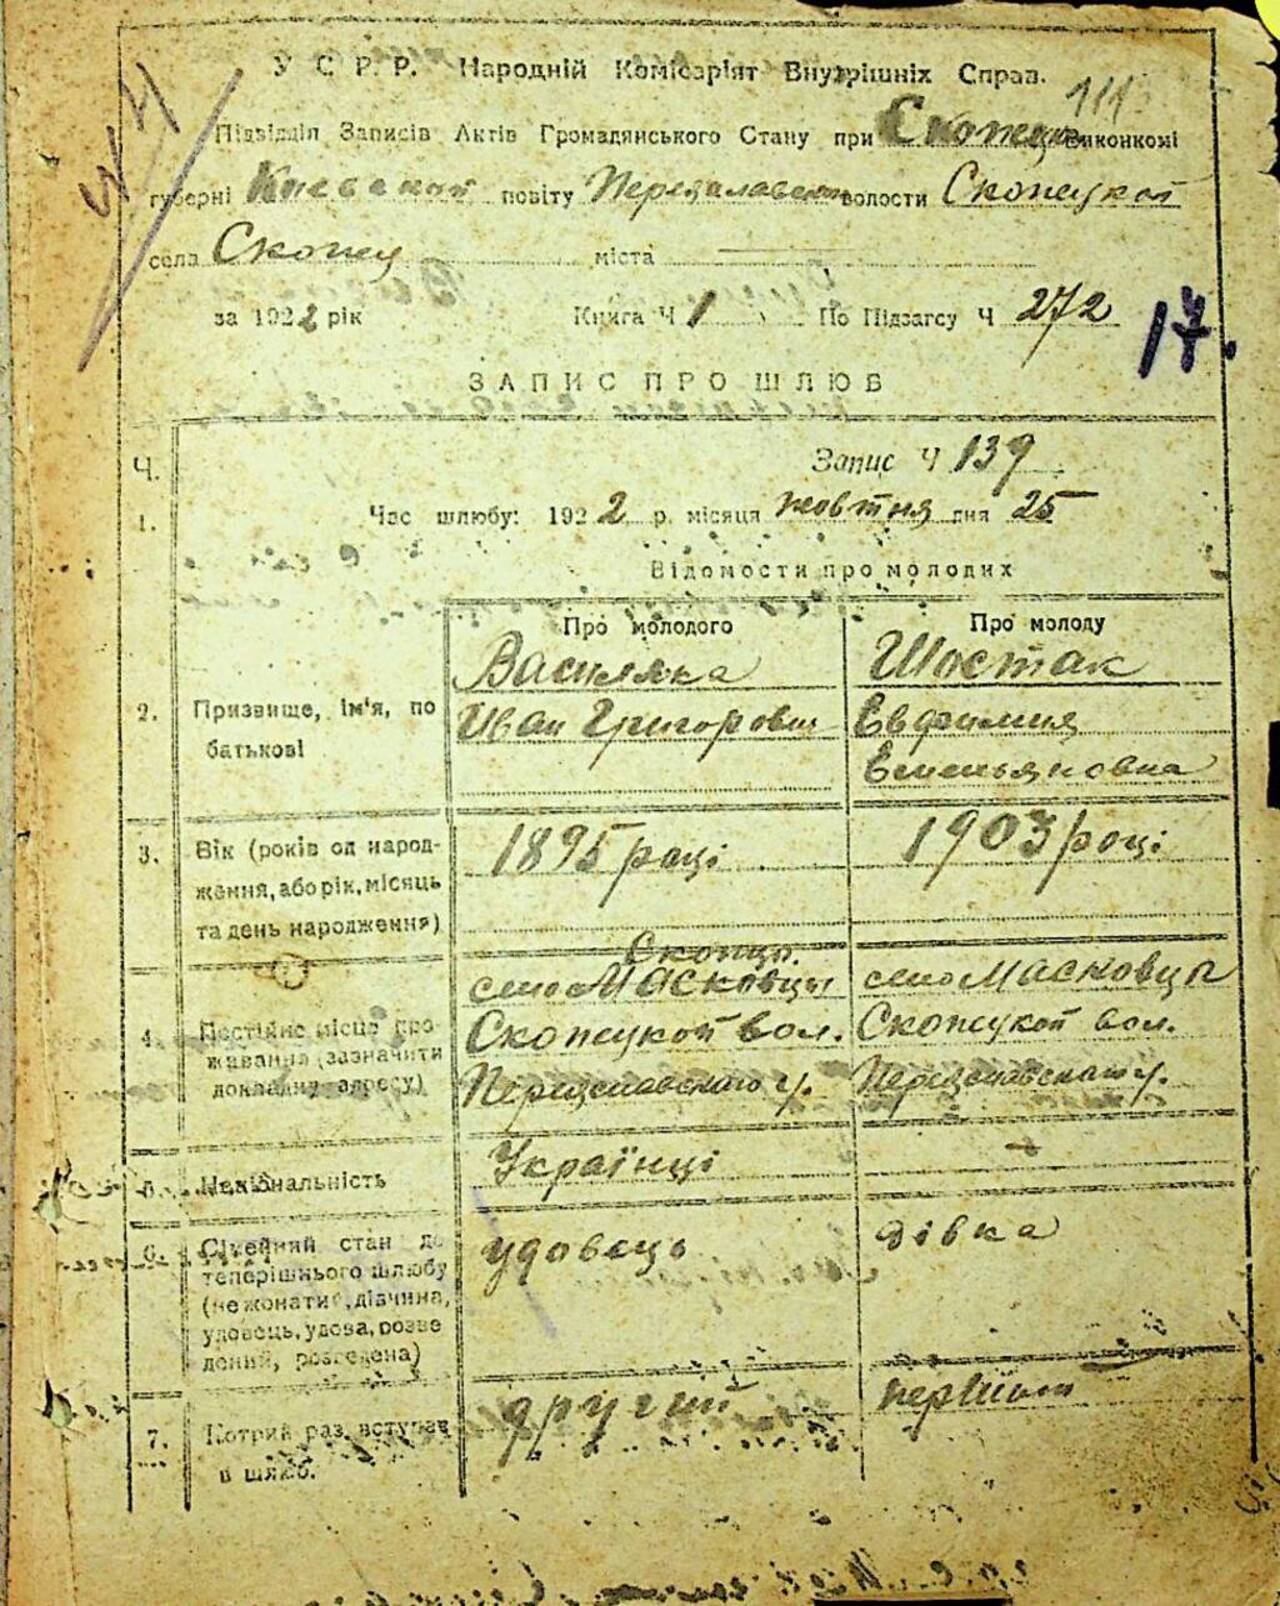 У С Р Р. Народній Комісаріят Внутрішніх Справ.
111
Підвідділ Записів Актів Громадянського Стану при Скопецк Виконкомі
губерні Киевской повіту Переяславском волости Скопецкой
села Скопец міста
за 1922 рік Книга Ч 1 По Підзагсу Ч 272
17.
ЗАПИС ПРО ШЛЮБ
Ч. Запис Ч 139
1. Час шлюбу: 1922 р. місяця жовтня дня 25
Відомости про молодих
Про молодого Про молоду
2. Призвище, ім'я, по батькові
Василяка
Иван Григорович
Шостак
Евфимия
Емельяновна
3. Вік (років од народ-
ження, або рік, місяць
та день народження)
1895 році
1903 році
4. Постійне місце про-
жавання (зазначити
докладну адресу)
Скопцы.
село Масковцы
Скопецкой вол.
Переяславскаго у.
село Масковцы
Скопецкой вол.
Переяславскаго у.
5. Національність
Українці
6. Сімейний стан до
теперішнього шлюбу
(не жонатий, дівчина,
удовець, удова, розве
дений, розведена)
удовець
дівка
7. Котрий раз вступає
в шлюб.
другий
першой